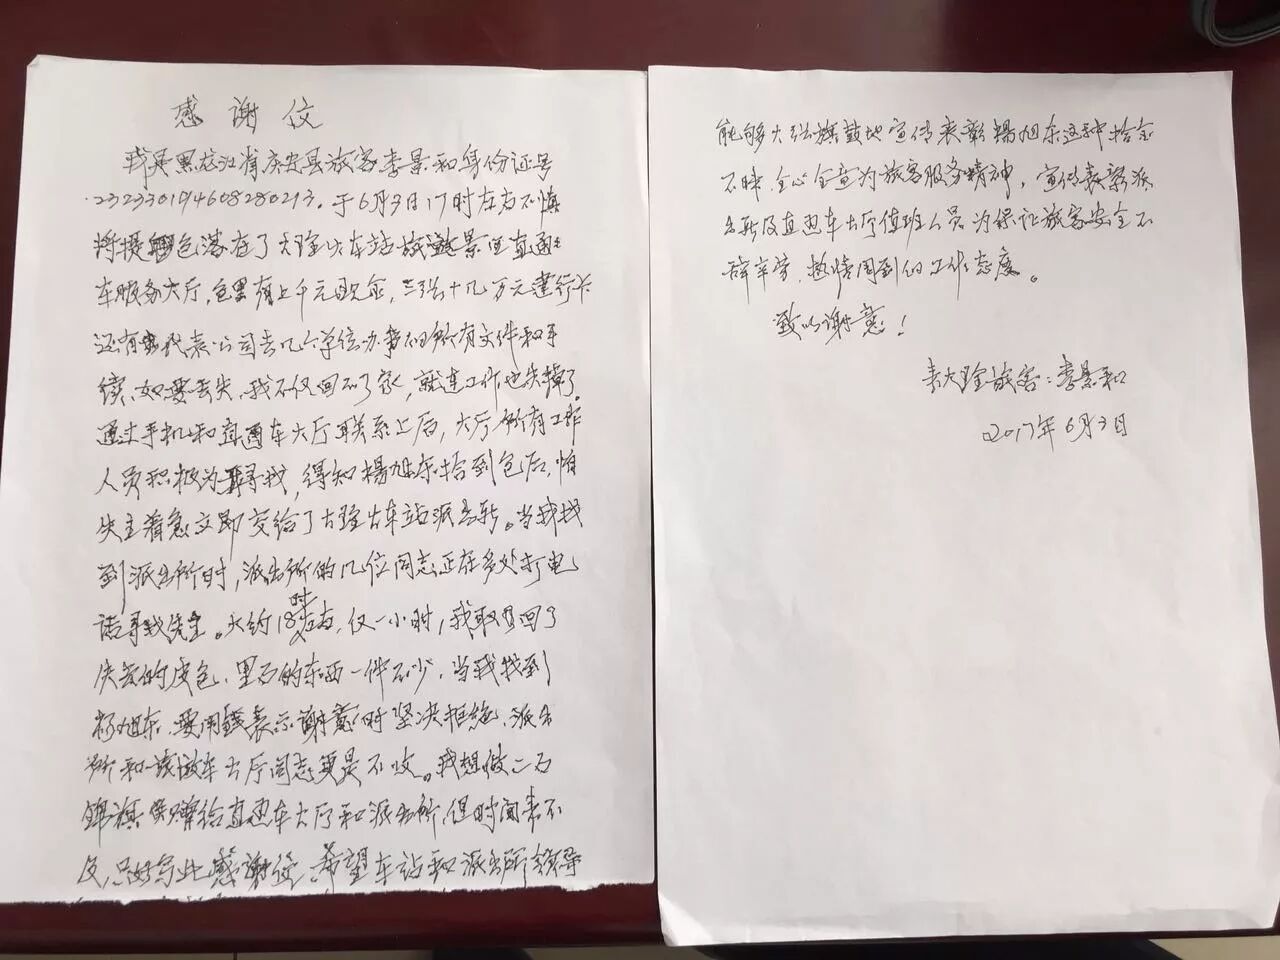 感谢信
我是黑龙江省庆安县旅客李景和身份证号
232330194608280213.于6月3日17时左右不慎
将提包落在了大理火车站旅游景区直通
车服务大厅,包里有上千元现金,三张十几万元建行卡
还有代表公司去几个单位办事的所有文件和手
续,如要丢失,我不仅回不了家,就连工作也失掉了。
通过手机和直通车大厅联系上后,大厅所有工作
人员积极为寻找,得知杨旭东拾到包后,怕
失主着急立即交给了大理火车站派出所。当我找
到派出所时,派出所的几位同志正在多处打电
话寻找失主。大约18时左右,仅一小时,我取回了
失去的皮包,里面的东西一件不少,当我找到
杨旭东,要用钱表示谢意时坚决拒绝,派出
所和大厅同志更是不收。我想做二面
锦旗赠给直通车大厅和派出所,但时间来不
及,只好写此感谢信,希望车站和派出所领导
能够大张旗鼓地宣传表彰杨旭东这种拾金
不昧,全心全意为旅客服务精神,宣传表彰派
出所及直通车大厅值班人员为保证旅客安全不
辞辛劳,热情周到的工作态度。
致以谢意!
来大理旅客:李景和
2017年6月3日